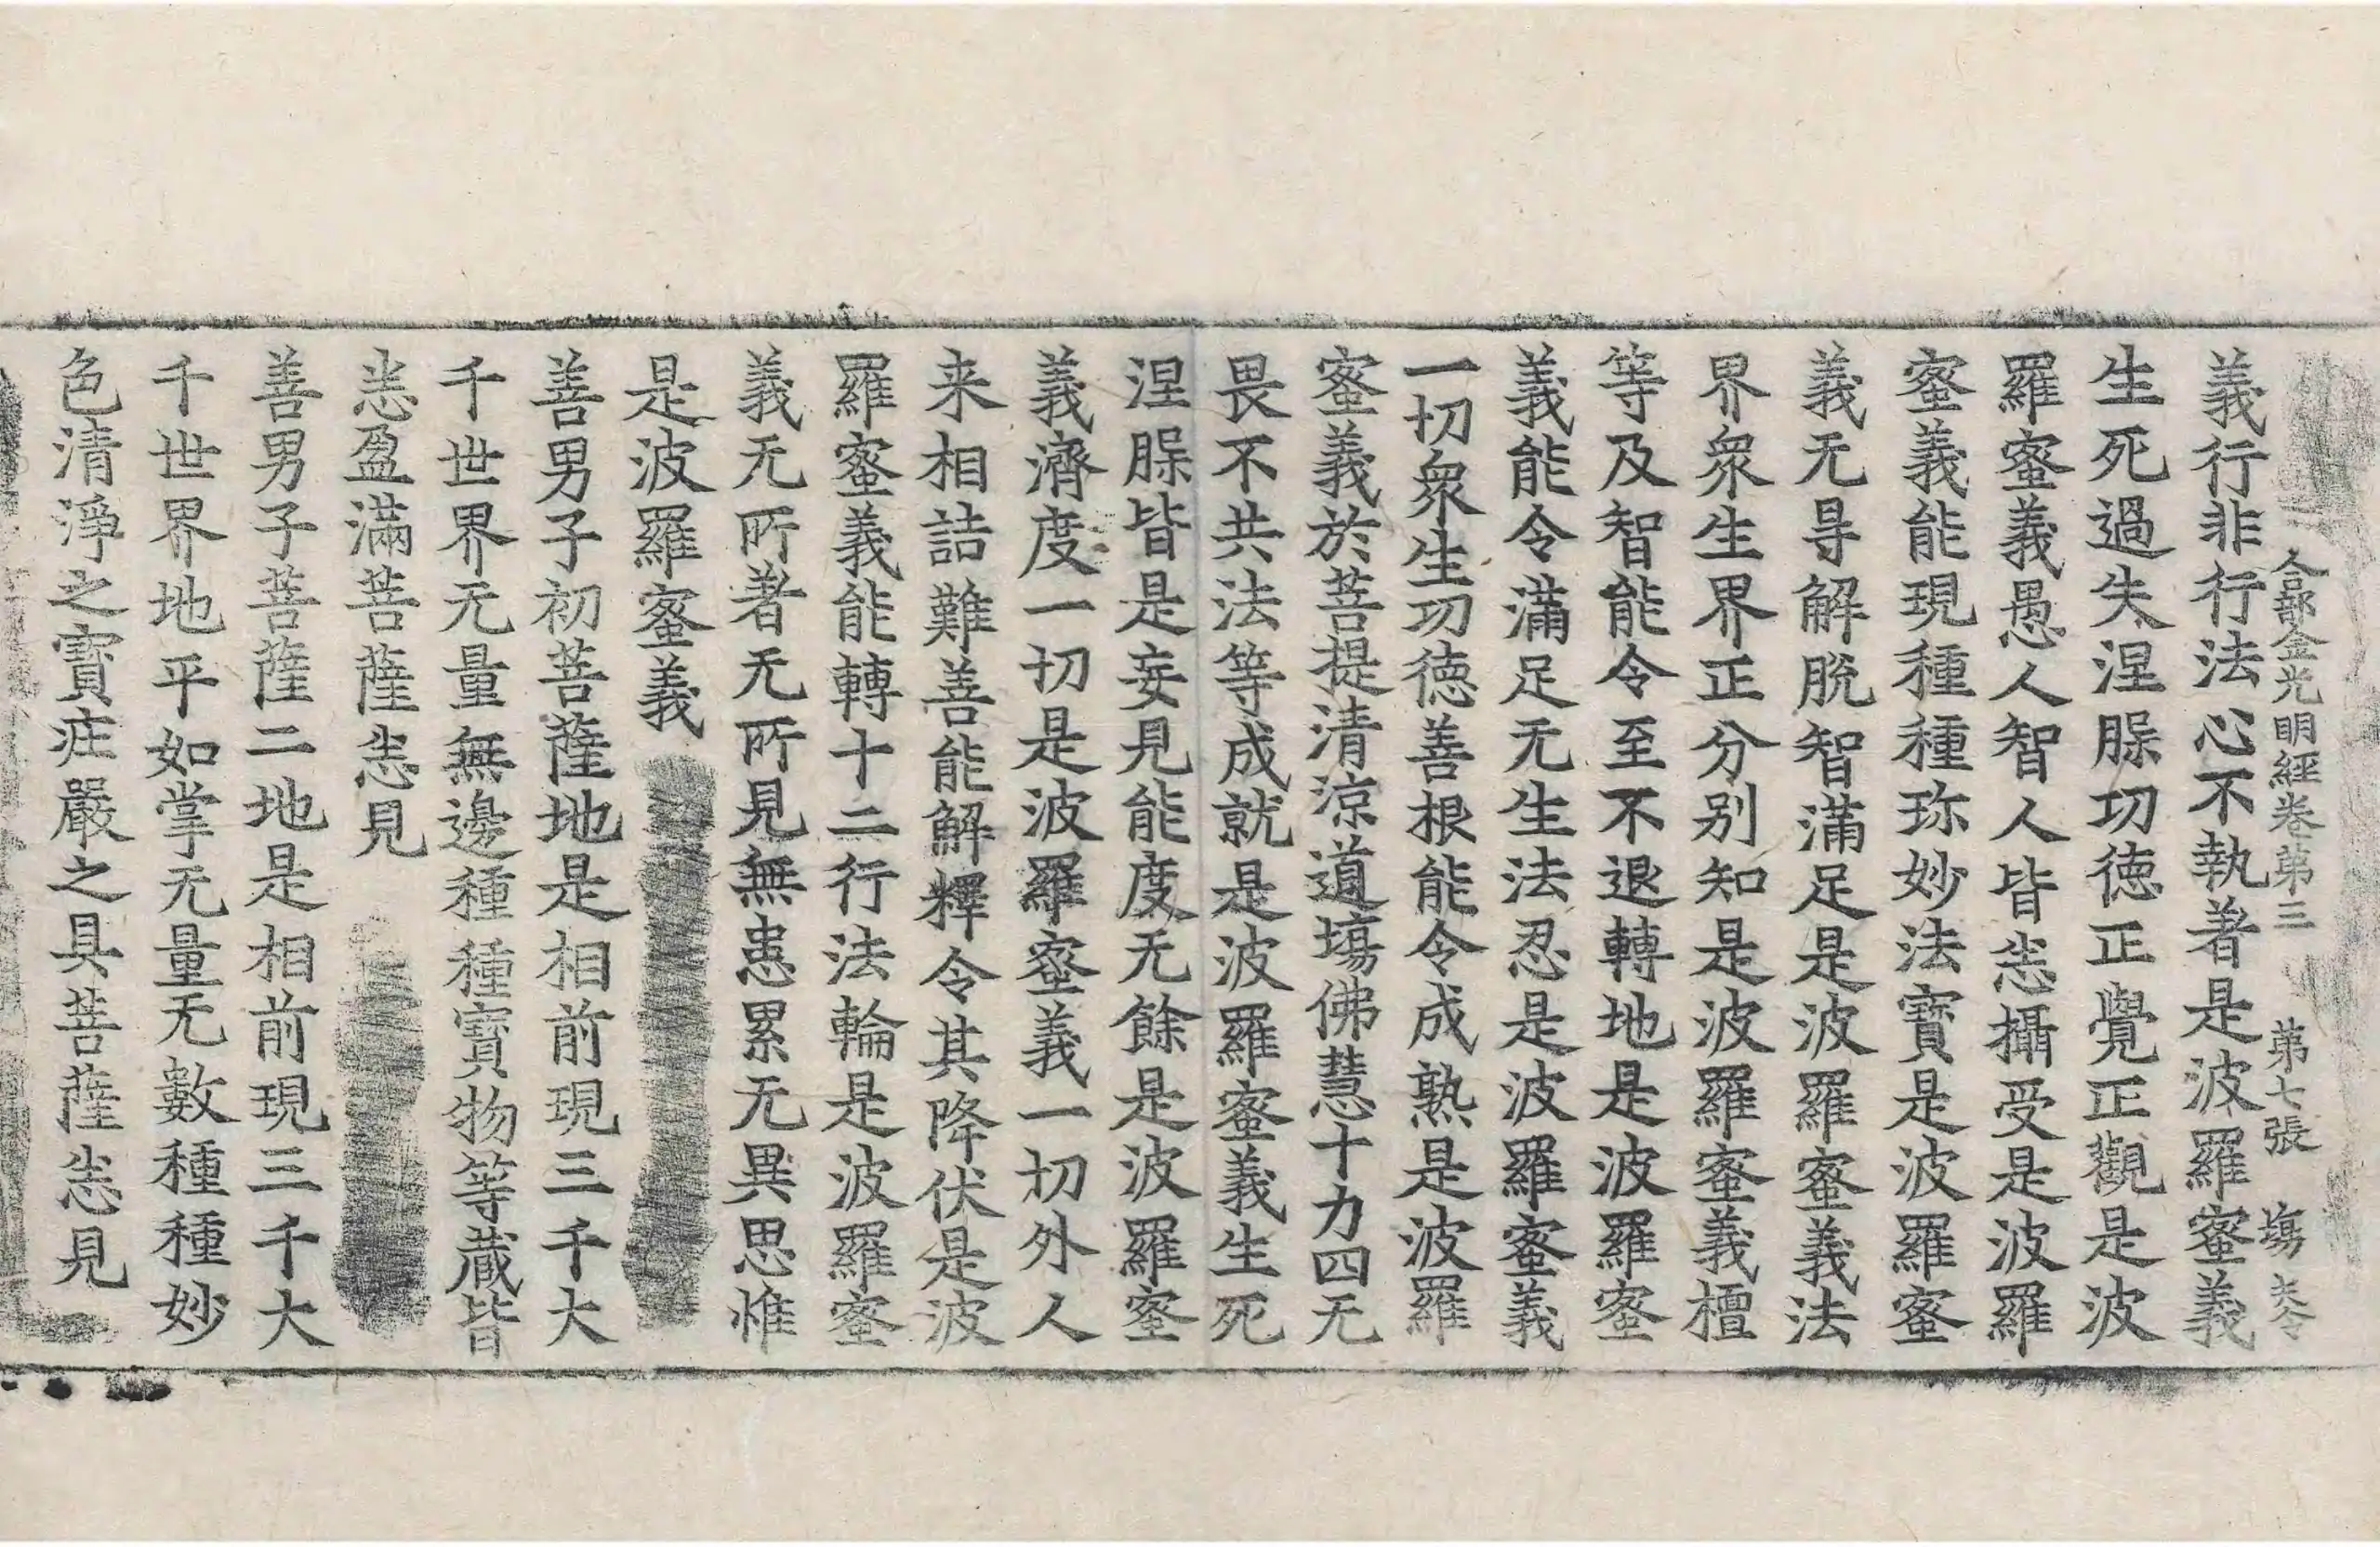 合部金光明經卷第三 第七張 塲
義行非行法心不執著是波羅蜜義
生死過失涅脲功徳正覺正觀是波
羅蜜義愚人智人皆恙攝受是波羅
蜜義能現種種珎妙法寶是波羅蜜
義无㝵解脫智滿足是波羅蜜義法
界衆生界正分别知是波羅蜜義檀
等及智能令至不退轉地是波羅蜜
義能令滿足无生法忍是波羅蜜義
一切衆生功徳善根能令成熟是波羅
蜜義於菩提清涼道塲佛慧十力四无
畏不共法等成就是波羅蜜義生死
涅脲皆是妄見能度无餘是波羅蜜
義濟度一切是波羅蜜義一切外人
来相詰難善能解釋令其降伏是波
羅蜜義能轉十二行法輪是波羅蜜
義无所著无所見無患累无異思惟
是波羅蜜義
善男子初菩薩地是相前現三千大
千世界无量無邊種種寶物等蔵皆
恙盈滿菩薩恙見
善男子菩薩二地是相前現三千大
千世界地平如掌无量无數種種妙
色清淨之寶疘嚴之具菩薩恙見